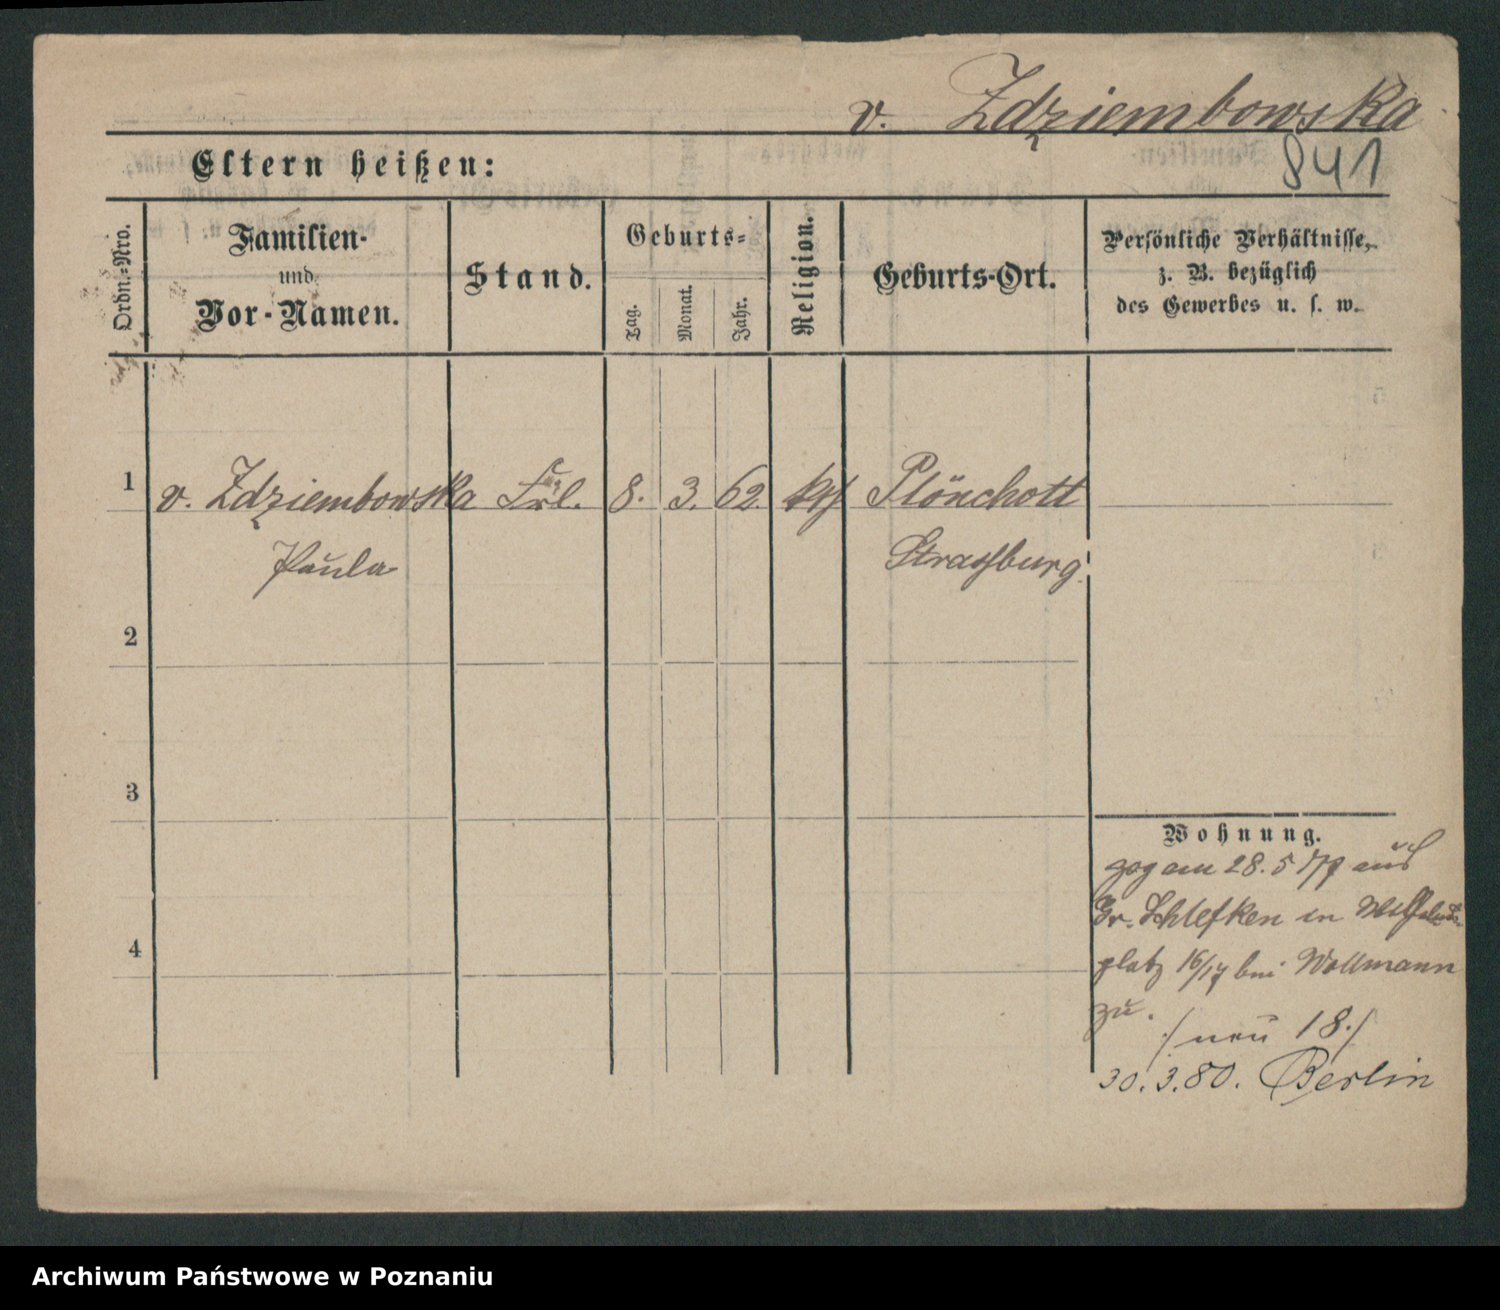 v. Zdziembowska
841
Eltern heißen:
Ordn.-Nro.
Familien-
und
Vor-Namen.
Stand.
Geburts-
Tag.
Monat.
Jahr.
Religion.
Geburts-Ort.
Persönliche Verhältnisse,
z. B. bezüglich
des Gewerbes u. s. w.
1
v. Zdziembowska Frl. 8. 3. 62. kth Plönchott
Paula
Strassburg
2
3
4
Wohnung.
zog am 28. 5 aus
Gr. in
platz 16/17 bei Wollmann
zu.
/ neu 18. /
30. 3. 80. Berlin
Archiwum Państwowe w Poznaniu